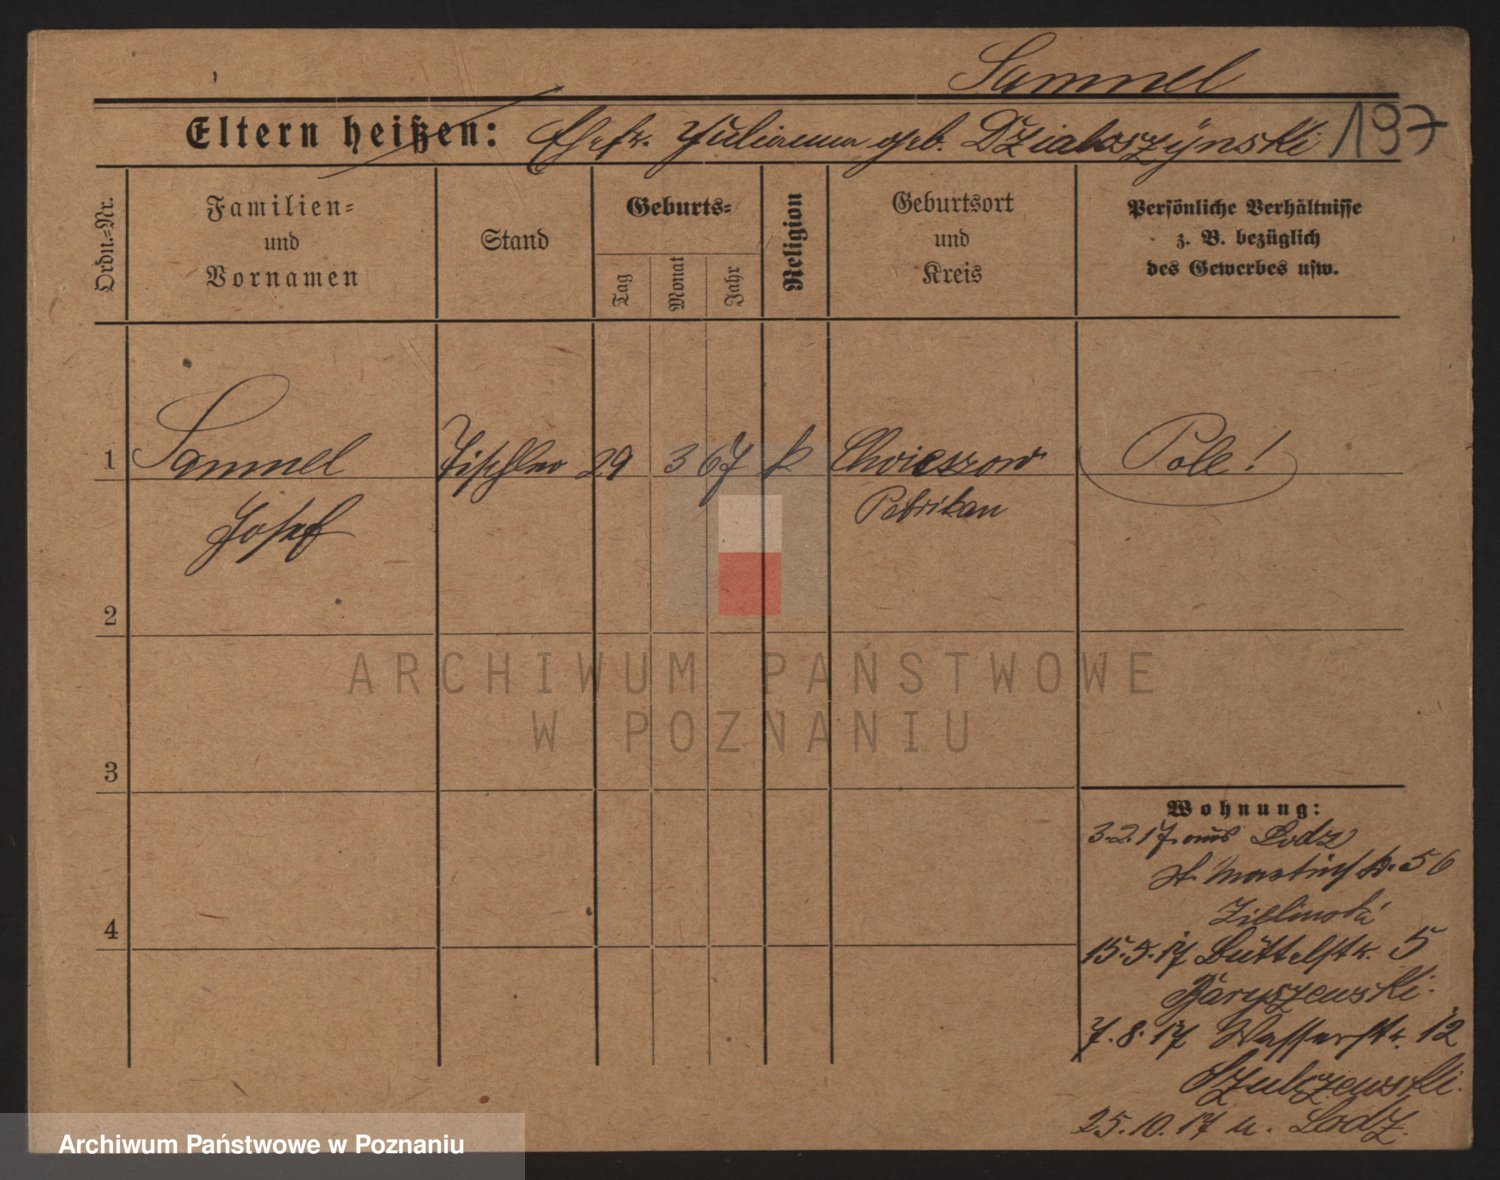 Sammel
Eltern heißen: Ehefr. Julianna geb. Dziakszÿnski 197
Ordn.-Nr.
Familien-
und
Vornamen
Stand
Geburts-
Tag
Monat
Jahr
Religion
Geburtsort
und
Kreis
Persönliche Verhältnisse
z. B. bezüglich
des Gewerbes usw.
1 Sammel Tischler 29 3 67 k. Pole!
Josef Petrikau
2
3
4
Wohnung:
3.2.17 aus Lodz
St. Martinstr. 56
Zielinska
15.5.17 Büttelstr. 5
Baryszewski.
7.8.17 Wasserstr. 12
Szulczewski.
25.10.17 n. Lodz.
ARCHIWUM PAŃSTWOWE
W POZNANIU
Archiwum Państwowe w Poznaniu